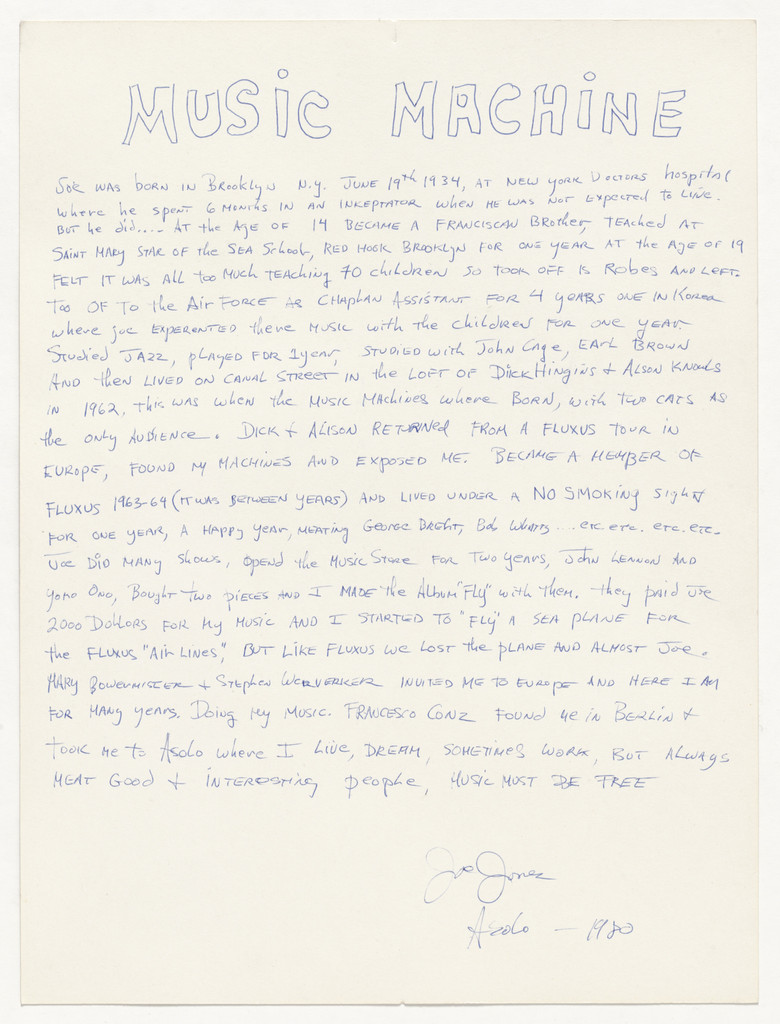 MUSiC MACHiNE
Joe WAS BORN IN BROOKLYN N.Y. JUNE 19th 1934, AT NEW YORK DOCTORS hospital
where he spent 6 MONTHS IN AN INKEPTATOR WHEN HE WAS NOT EXPECTED TO LIVE.
BUT he did..... AT the AGE OF 14 BECAME A FRANCISCAN BROTHER, TEACHED AT
SAINT MARY STAR OF the SEA School, RED HOOK BROOKLYN FOR ONE YEAR AT the AGE OF 19
FELT IT WAS ALL too Much TEACHING 70 children SO TOOK OFF IS Robes AND LEFT.
Too OF To the Air FORCE AS CHAPLAN ASSISTANT FOR 4 YEARS ONE IN KOREA
where joe EXPERENTED there MUSIC with the children FOR ONE YEAR.
Studied JAZZ, played FOR 1 year, STUDIED with John Cage, EARL BROWN
AND then LIVED ON CANAL STREET IN the LOFT OF DICK HINGINS + ALSON KNOWLS
IN 1962. this WAS when the MUSIC MACHINES where BORN, with TWO CATS AS
the ONLY AUDIENCE. DICK + ALISON RETURNED FROM A FLUXUS TOUR IN
EUROPE, FOUND MY MACHINES AND EXPOSED ME. BECAME A MEMBER OF
FLUXUS 1963-64 (IT WAS BETWEEN YEARS) AND LIVED UNDER A NO SMOKING SIGHN
FOR ONE YEAR, A HAPPY YEAR, MEATING GEORGE BRECHT, Bob WHATTS .... etc. etc. etc. etc.
JOE DID MANY Shows, OPEND the MUSIC STORE FOR TWO YEARS, JOHN LENNON AND
YOKO ONO, BOUGHT TWO PIECES AND I MADE the ALBUM "FLY" with Them. they paid Joe
2000 DOLLORS FOR MY MUSIC AND I STARTED TO "FLY" A SEA PLANE FOR
the FLUXUS "AiR LiNES", BUT LIKE FLUXUS WE LOST the PLANE AND ALMOST JOE.
MARY + Stephen INVITED ME TO EUROPE AND HERE I AM
FOR MANY YEARS. DOING MY MUSIC. FRANCESCO CONZ FOUND ME IN BERLIN +
TOOK ME to ASOLO where I LIVE, DREAM, SOMETIMES WORK, BUT ALWAYS
MEAT GOOD + INTERESTING people, MUSIC MUST BE FREE
Joe Jones
Asolo — 1980